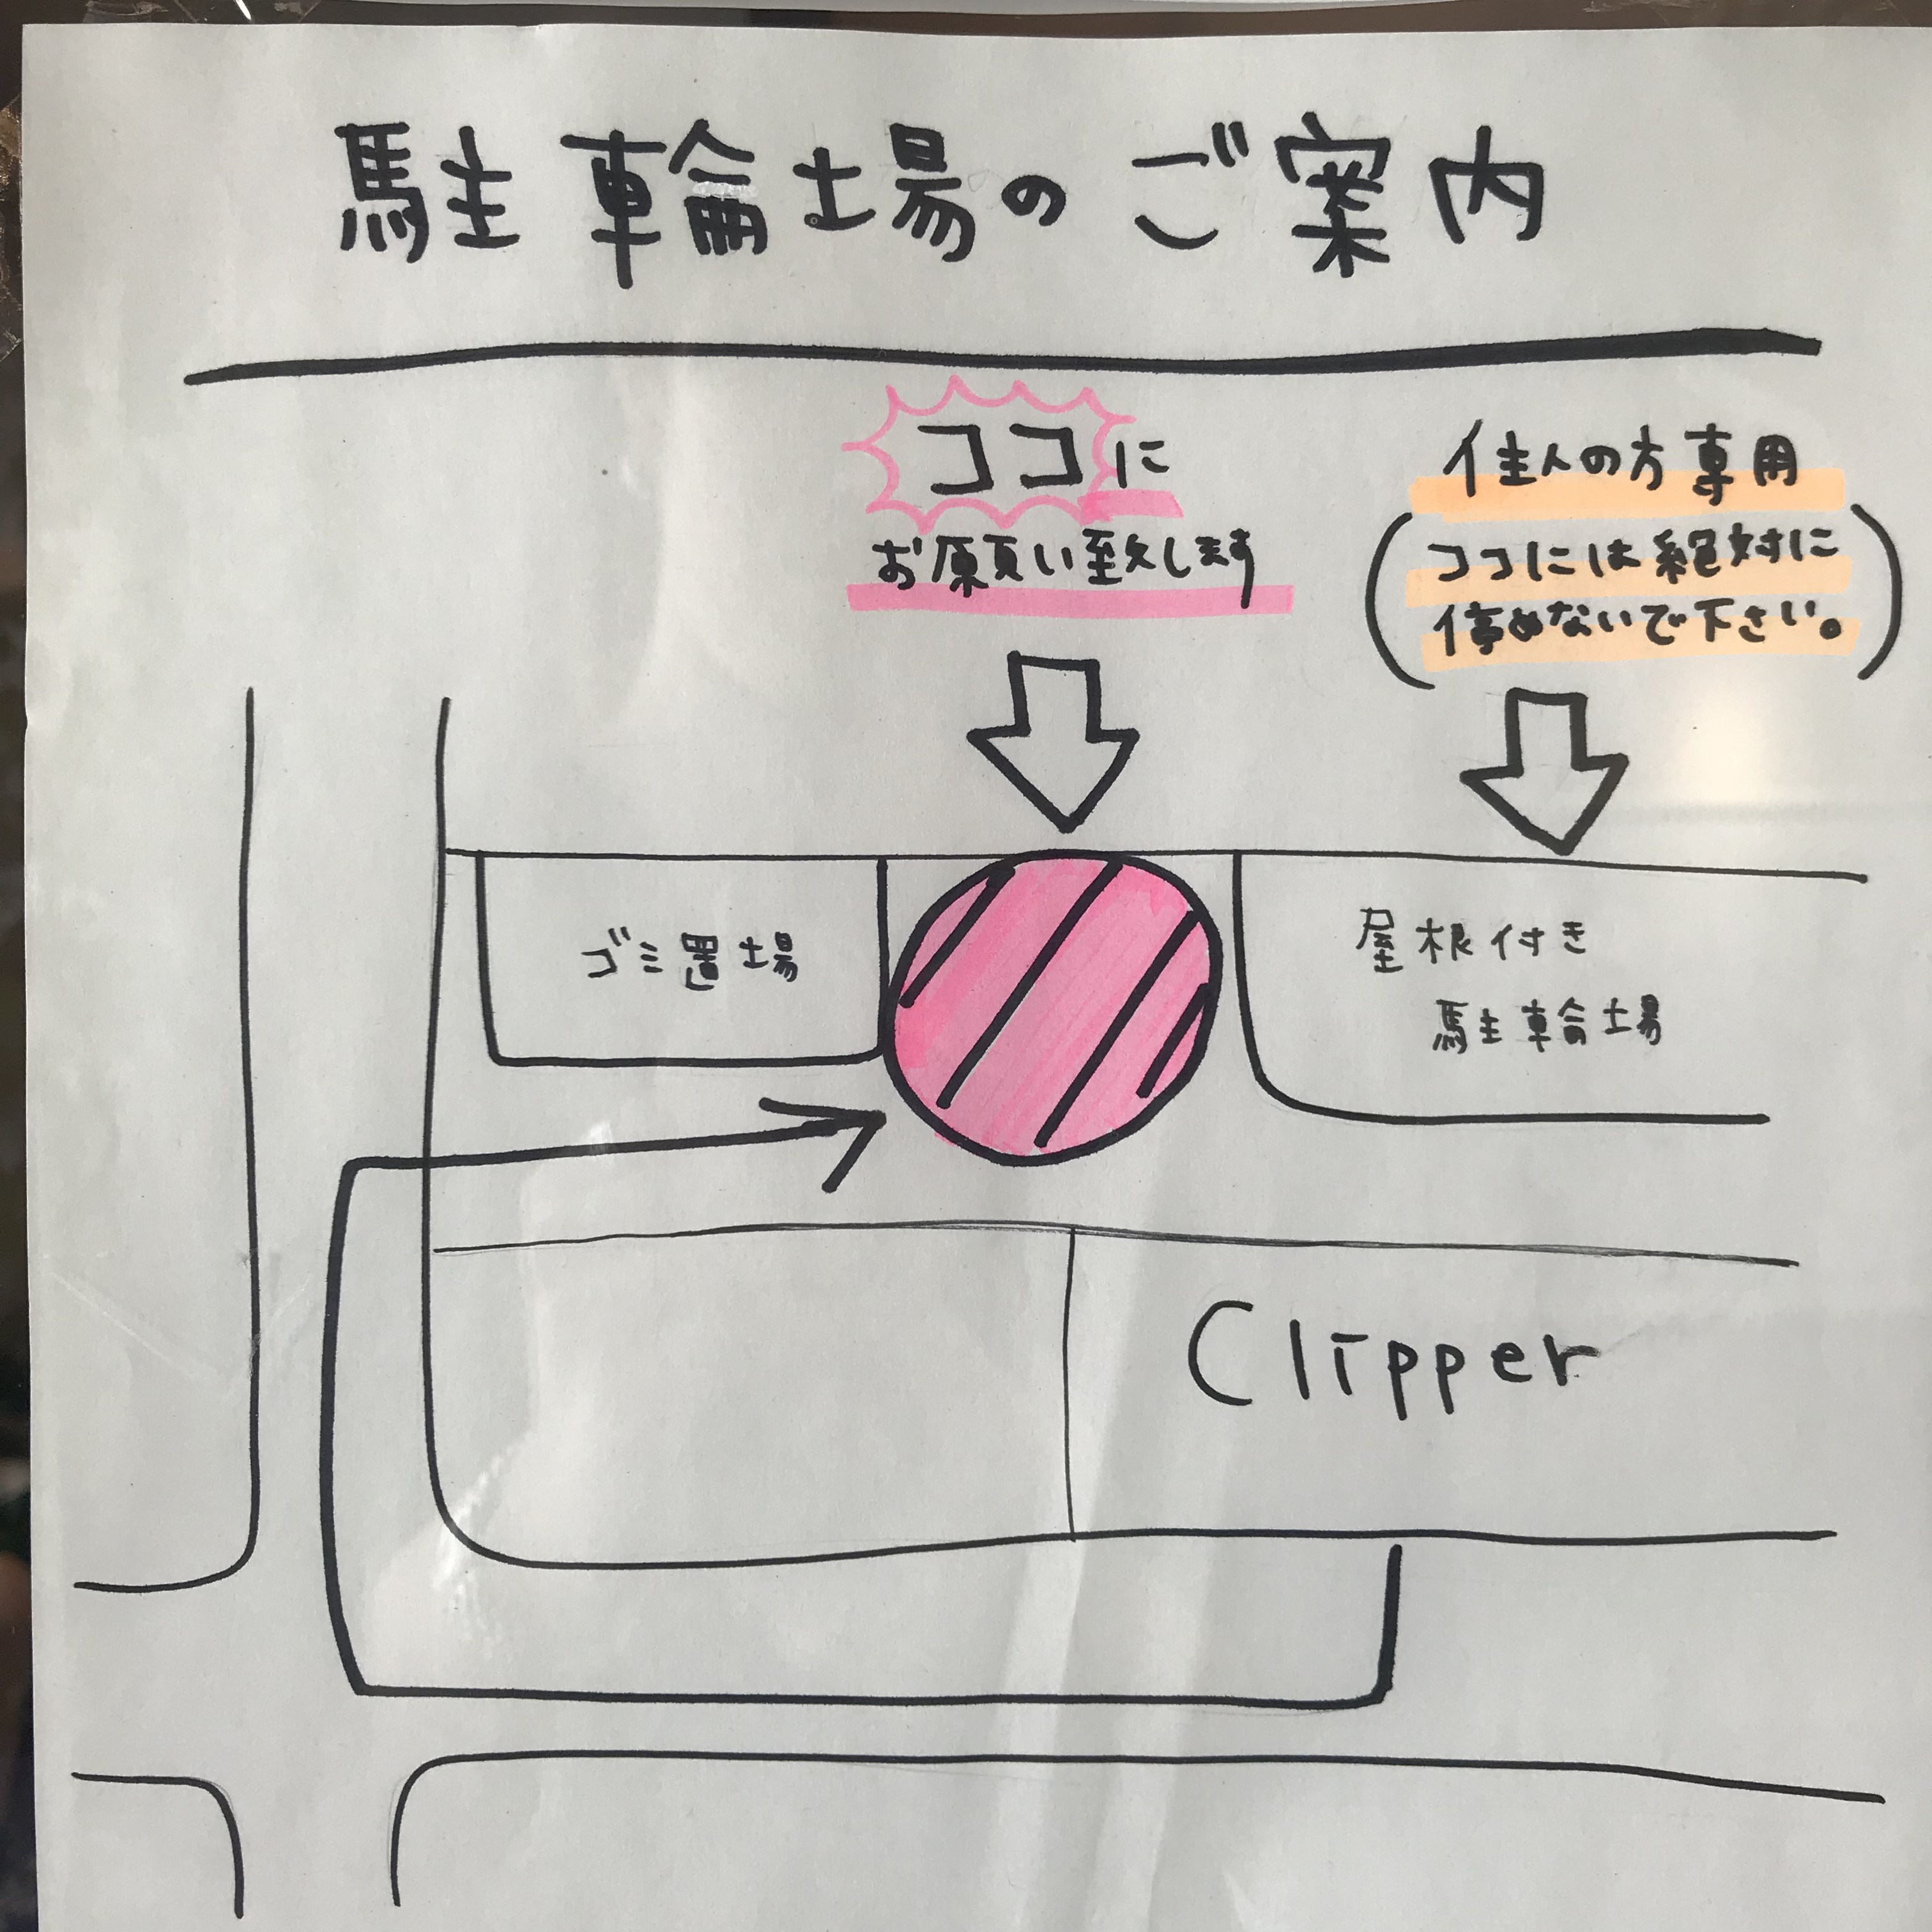 駐車輪場のご案内
ココに
お願い致します
住人の方専用
(ココには絶対に
停めないで下さい。)
ゴミ置場
屋根付き
駐車輪場
Clipper